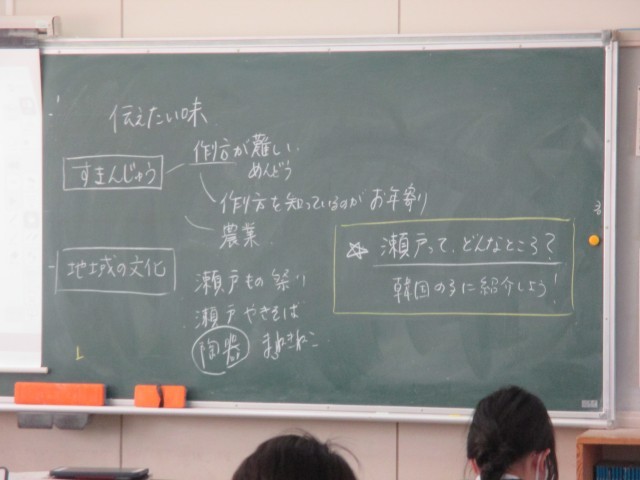 伝えたい味
すきんじゅう
作り方が難しい
めんどう
作り方を知っているのがお年寄り
農業
地域の文化
瀬戸もの祭り
瀬戸やきそば
陶器 まねきねこ
☆ 瀬戸って、どんなところ?
韓国の子に紹介しよう!